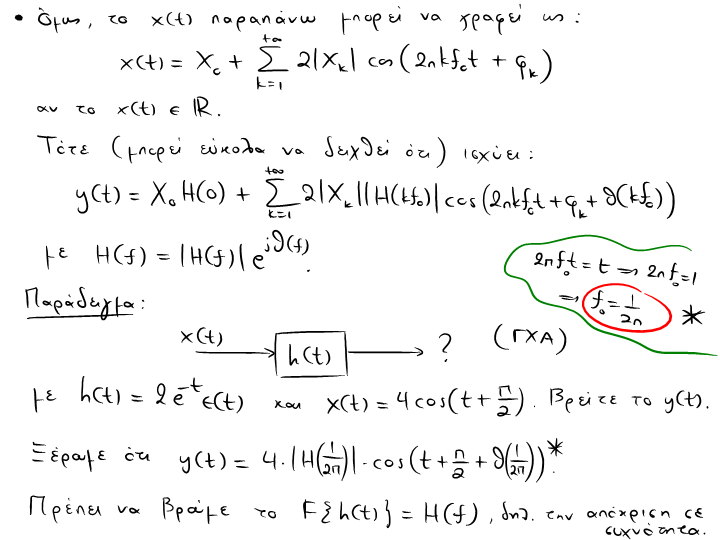 • Όμως, το x(t) παραπάνω μπορεί να γραφεί ως:
x(t) = X₀ + Σ_{k=1}^{+∞} 2|X_k| cos(2πkf₀t + φ_k)
αν το x(t) ∈ ℝ.
Τότε (μπορεί εύκολα να δειχθεί ότι) ισχύει:
y(t) = X₀H(0) + Σ_{k=1}^{+∞} 2|X_k||H(kf₀)| cos(2πkf₀t + φ_k + θ(kf₀))
με H(f) = |H(f)| e^{jθ(f)}.
2πf₀t = t ⇒ 2πf₀ = 1
⇒ f₀ = 1/2π *
Παράδειγμα:
x(t) → h(t) → ? (ΓΧΑ)
με h(t) = 2e^{-t}ε(t) και x(t) = 4cos(t + π/2). Βρείτε το y(t).
Ξέραμε ότι y(t) = 4·|H(1/2π)|·cos(t + π/2 + θ(1/2π))*.
Πρέπει να βράμε το F{h(t)} = H(f), δηλ. την απόκριση σε
συχνότητα.